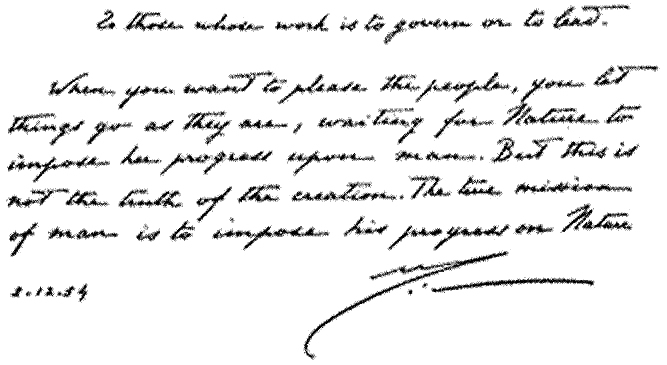 To those whose work is to govern or to lead.
When you want to please the people, you let
things go as they are, waiting for Nature to
impose her progress upon man. But this is
not the truth of the creation. The true mission
of man is to impose his progress on Nature
2.12.54